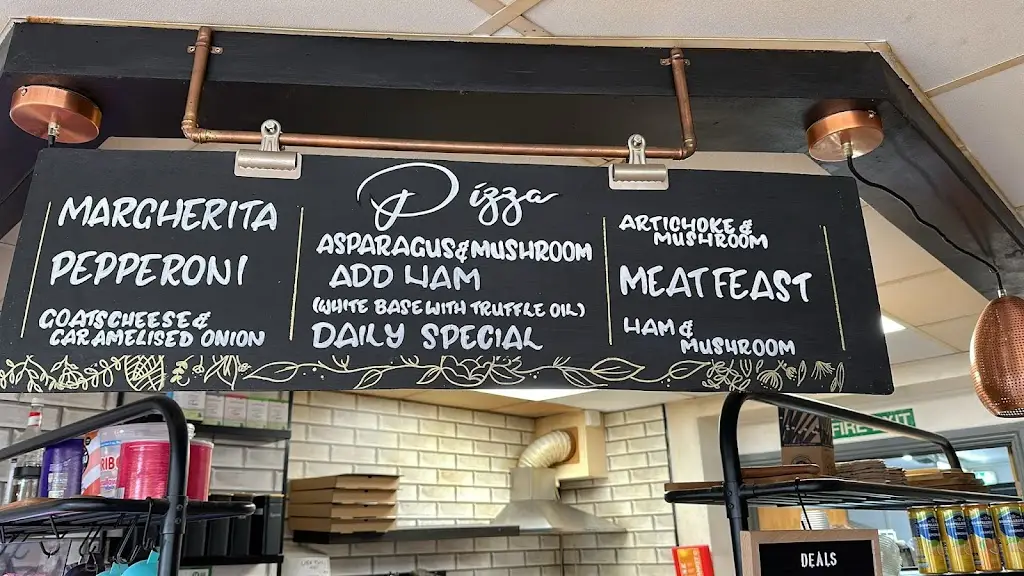 Pizza
MARGHERITA
PEPPERONI
GOATS CHEESE &
CARAMELISED ONION
ASPARAGUS & MUSHROOM
ADD HAM
(WHITE BASE WITH TRUFFLE OIL)
DAILY SPECIAL
ARTICHOKE &
MUSHROOM
MEAT FEAST
HAM &
MUSHROOM
FIRE EXIT
DEALS